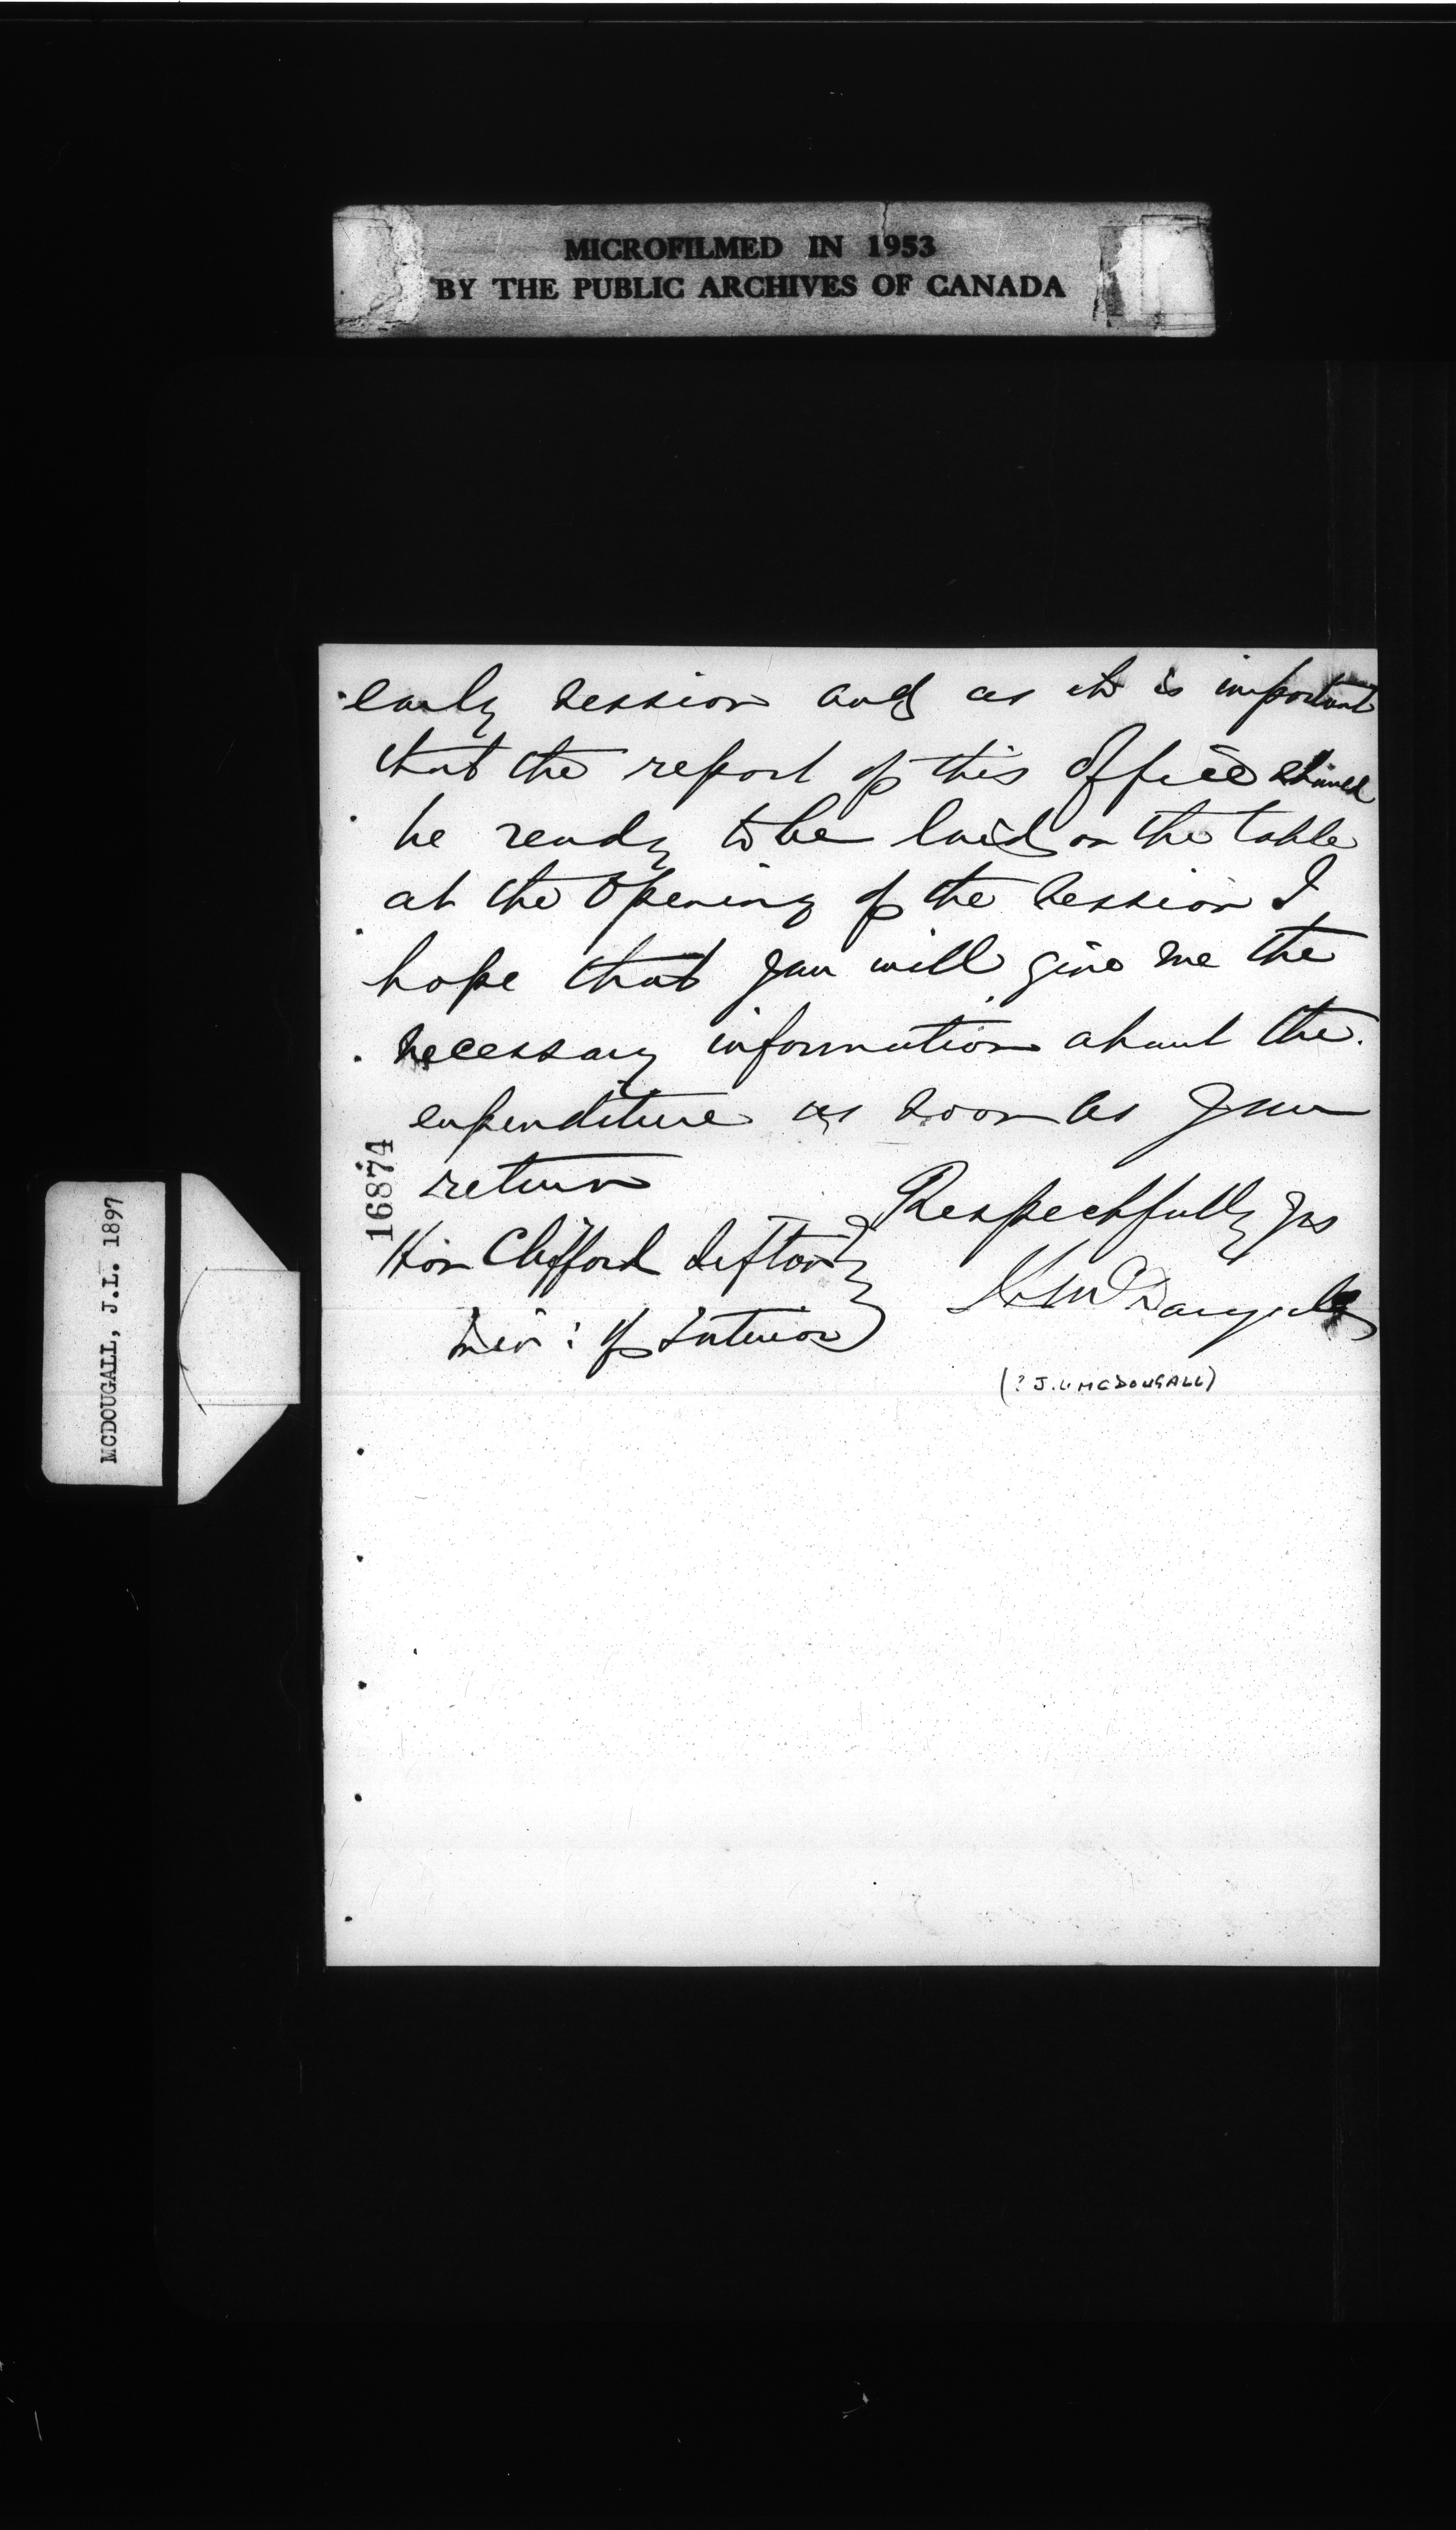 MICROFILMED IN 1953
BY THE PUBLIC ARCHIVES OF CANADA
early session and as it is important
that the report of this Office should
be ready to be laid on the table
at the opening of the Session I
hope that you will give me the
necessary information about the
expenditure as soon as you
return
Respectfully yrs
Hon Clifford Sifton
Min: of Interior
J L McDougall
(? J. L. MCDOUGALL)
16874
MCDOUGALL, J.L. 1897